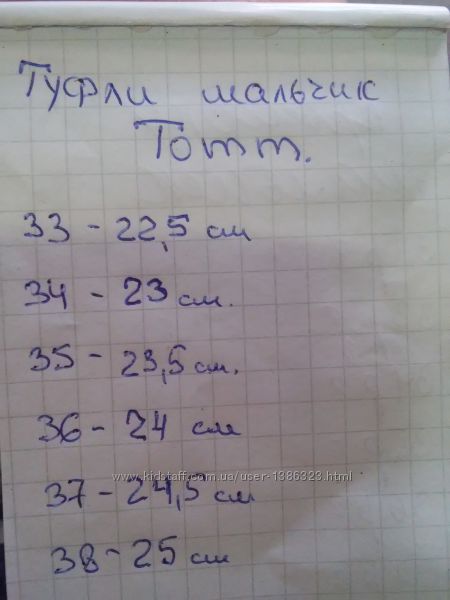 Туфли мальчик
Томт.
33 - 22,5 см
34 - 23 см.
35 - 23,5 см.
36 - 24 см
www.kidstaff.com.ua/user-1386323.html
37 - 24,5 см
38 - 25 см